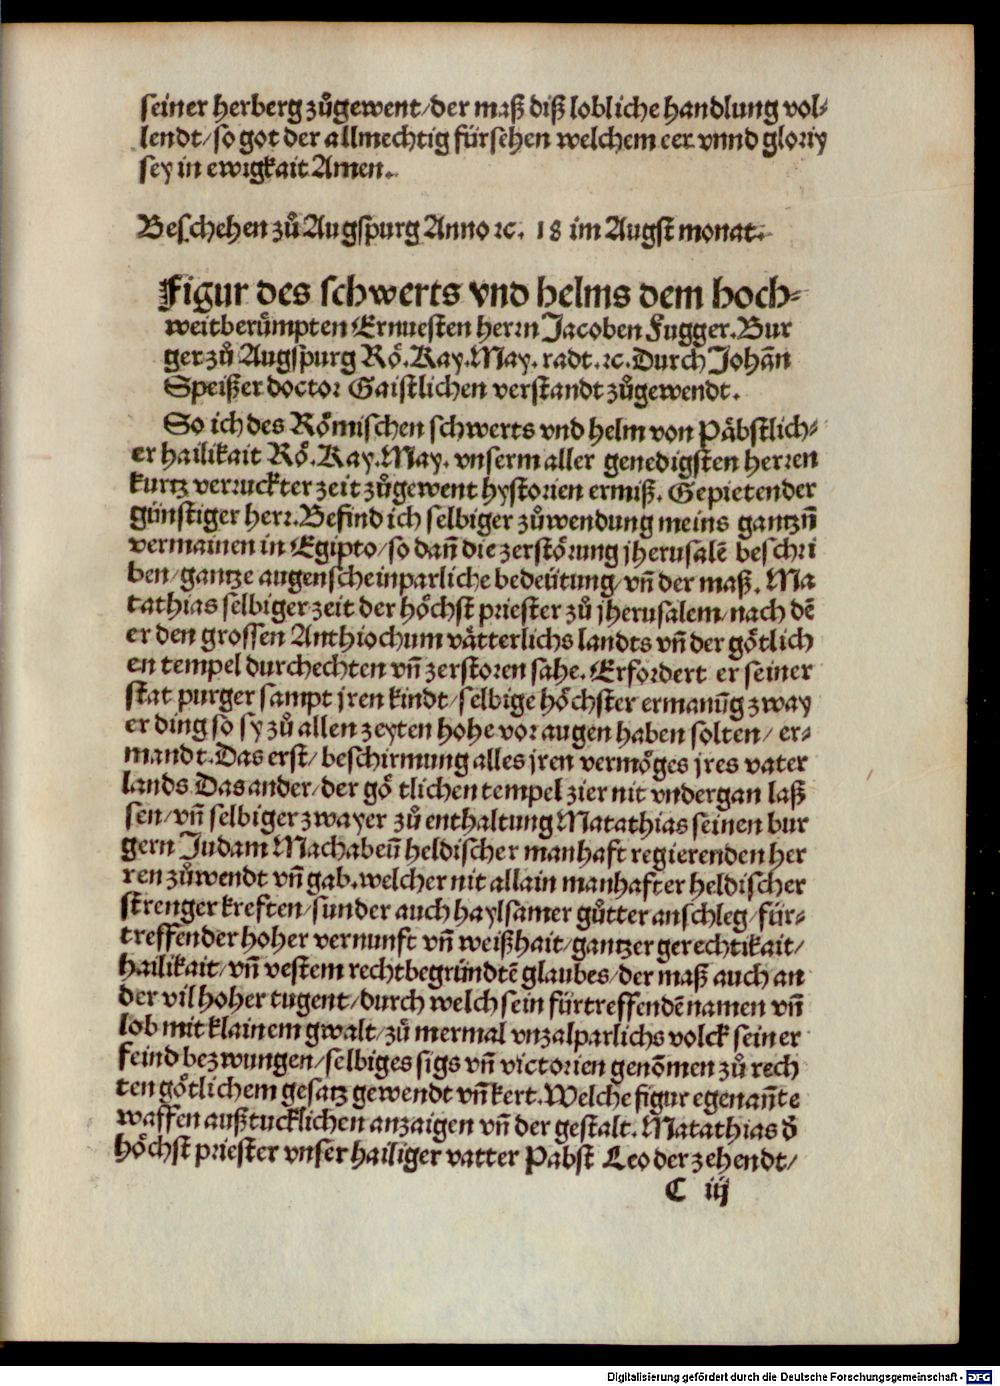 seiner herberg zůgewent/der maß diß lobliche handlung vol-
lendt/so got der allmechtig fürsehen welchem eer vnnd gloriy
sey in ewigkait Amen.
Beschehen zů Augspurg Anno ꝛc. 18 im Augst monat.
Figur des schwerts vnd helms dem hoch-
weitberůmpten Ernuesten herrn Jacoben Fugger. Bur
ger zů Augspurg Rö. Kay. May. radt. ꝛc. Durch Johañ
Speißer doctor Gaistlichen verstandt zůgewendt.
So ich des Römischen schwerts vnd helm von Påbstlich-
er hailikait Rö. Kay. May. vnserm aller genedigsten herren
kurtz verruckter zeit zůgewent hystorien ermiß. Gepietender
günstiger herr. Befind ich selbiger zůwendung meins gantzñ
vermainen in Egipto/so dañ die zerstörung jherusalē beschri
ben/gantze augenscheinparliche bedeütung/vñ der maß. Ma
tathias selbiger zeit der höchst priester zů jherusalem/nach dē
er den grossen Anthiochum våtterlichs landts vñ der götlich
en tempel durchechten vñ zerstoren sahe. Erfordert er seiner
stat purger sampt jren kindt/selbige höchster ermanūg zway
er ding so sy zů allen zeyten hohe vor augen haben solten/er-
mandt. Das erst/beschirmung alles jren vermöges jres vater
lands Das ander/der gö tlichen tempel zier nit vndergan laß
sen/vñ selbiger zwayer zů enthaltung Matathias seinen bur
gern Judam Machabeū heldischer manhaft regierenden her
ren zůwendt vñ gab. welcher nit allain manhafter heldischer
strenger kreften/sunder auch haylsamer gůtter anschleg/für-
treffender hoher vernunft vñ weißhait/gantzer gerechtikait/
hailikait/vñ vestem rechtbegründtē glaubes/der maß auch an
der vil hoher tugent/durch welch sein fürtreffendē namen vñ
lob mit klainem gwalt/zů mermal vnzalparlichs volck seiner
feind bezwungen/selbiges sigs vñ victorien genōmen zů rech
ten götlichem gesatz gewendt vñ kert. Welche figur egenañte
waffen außtucklichen anzaigen vñ der gestalt. Matathias ð
höchst priester vnser hailiger vatter Pabst Leo der zehendt/
C iij
Digitalisierung gefördert durch die Deutsche Forschungsgemeinschaft - DFG